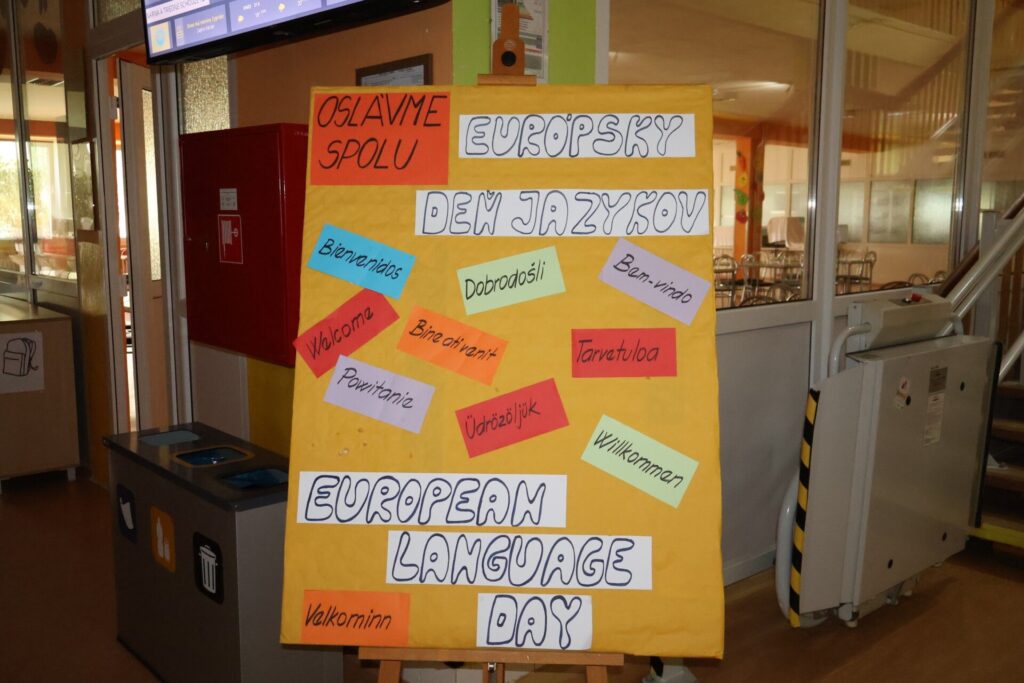 OSLÁVME
SPOLU
EURÓPSKY
DEŇ JAZYKOV
Bienvenidos
Dobrodošli
Bem-vindo
Welcome
Bine ati venit
Tarvetuloa
Powitanie
Üdrözöljük
Willkommen
EUROPEAN
LANGUAGE
DAY
Velkominn